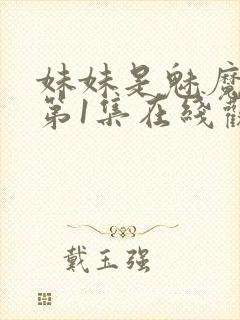 妹妹是魅魔
第1集在线観
戴玉强